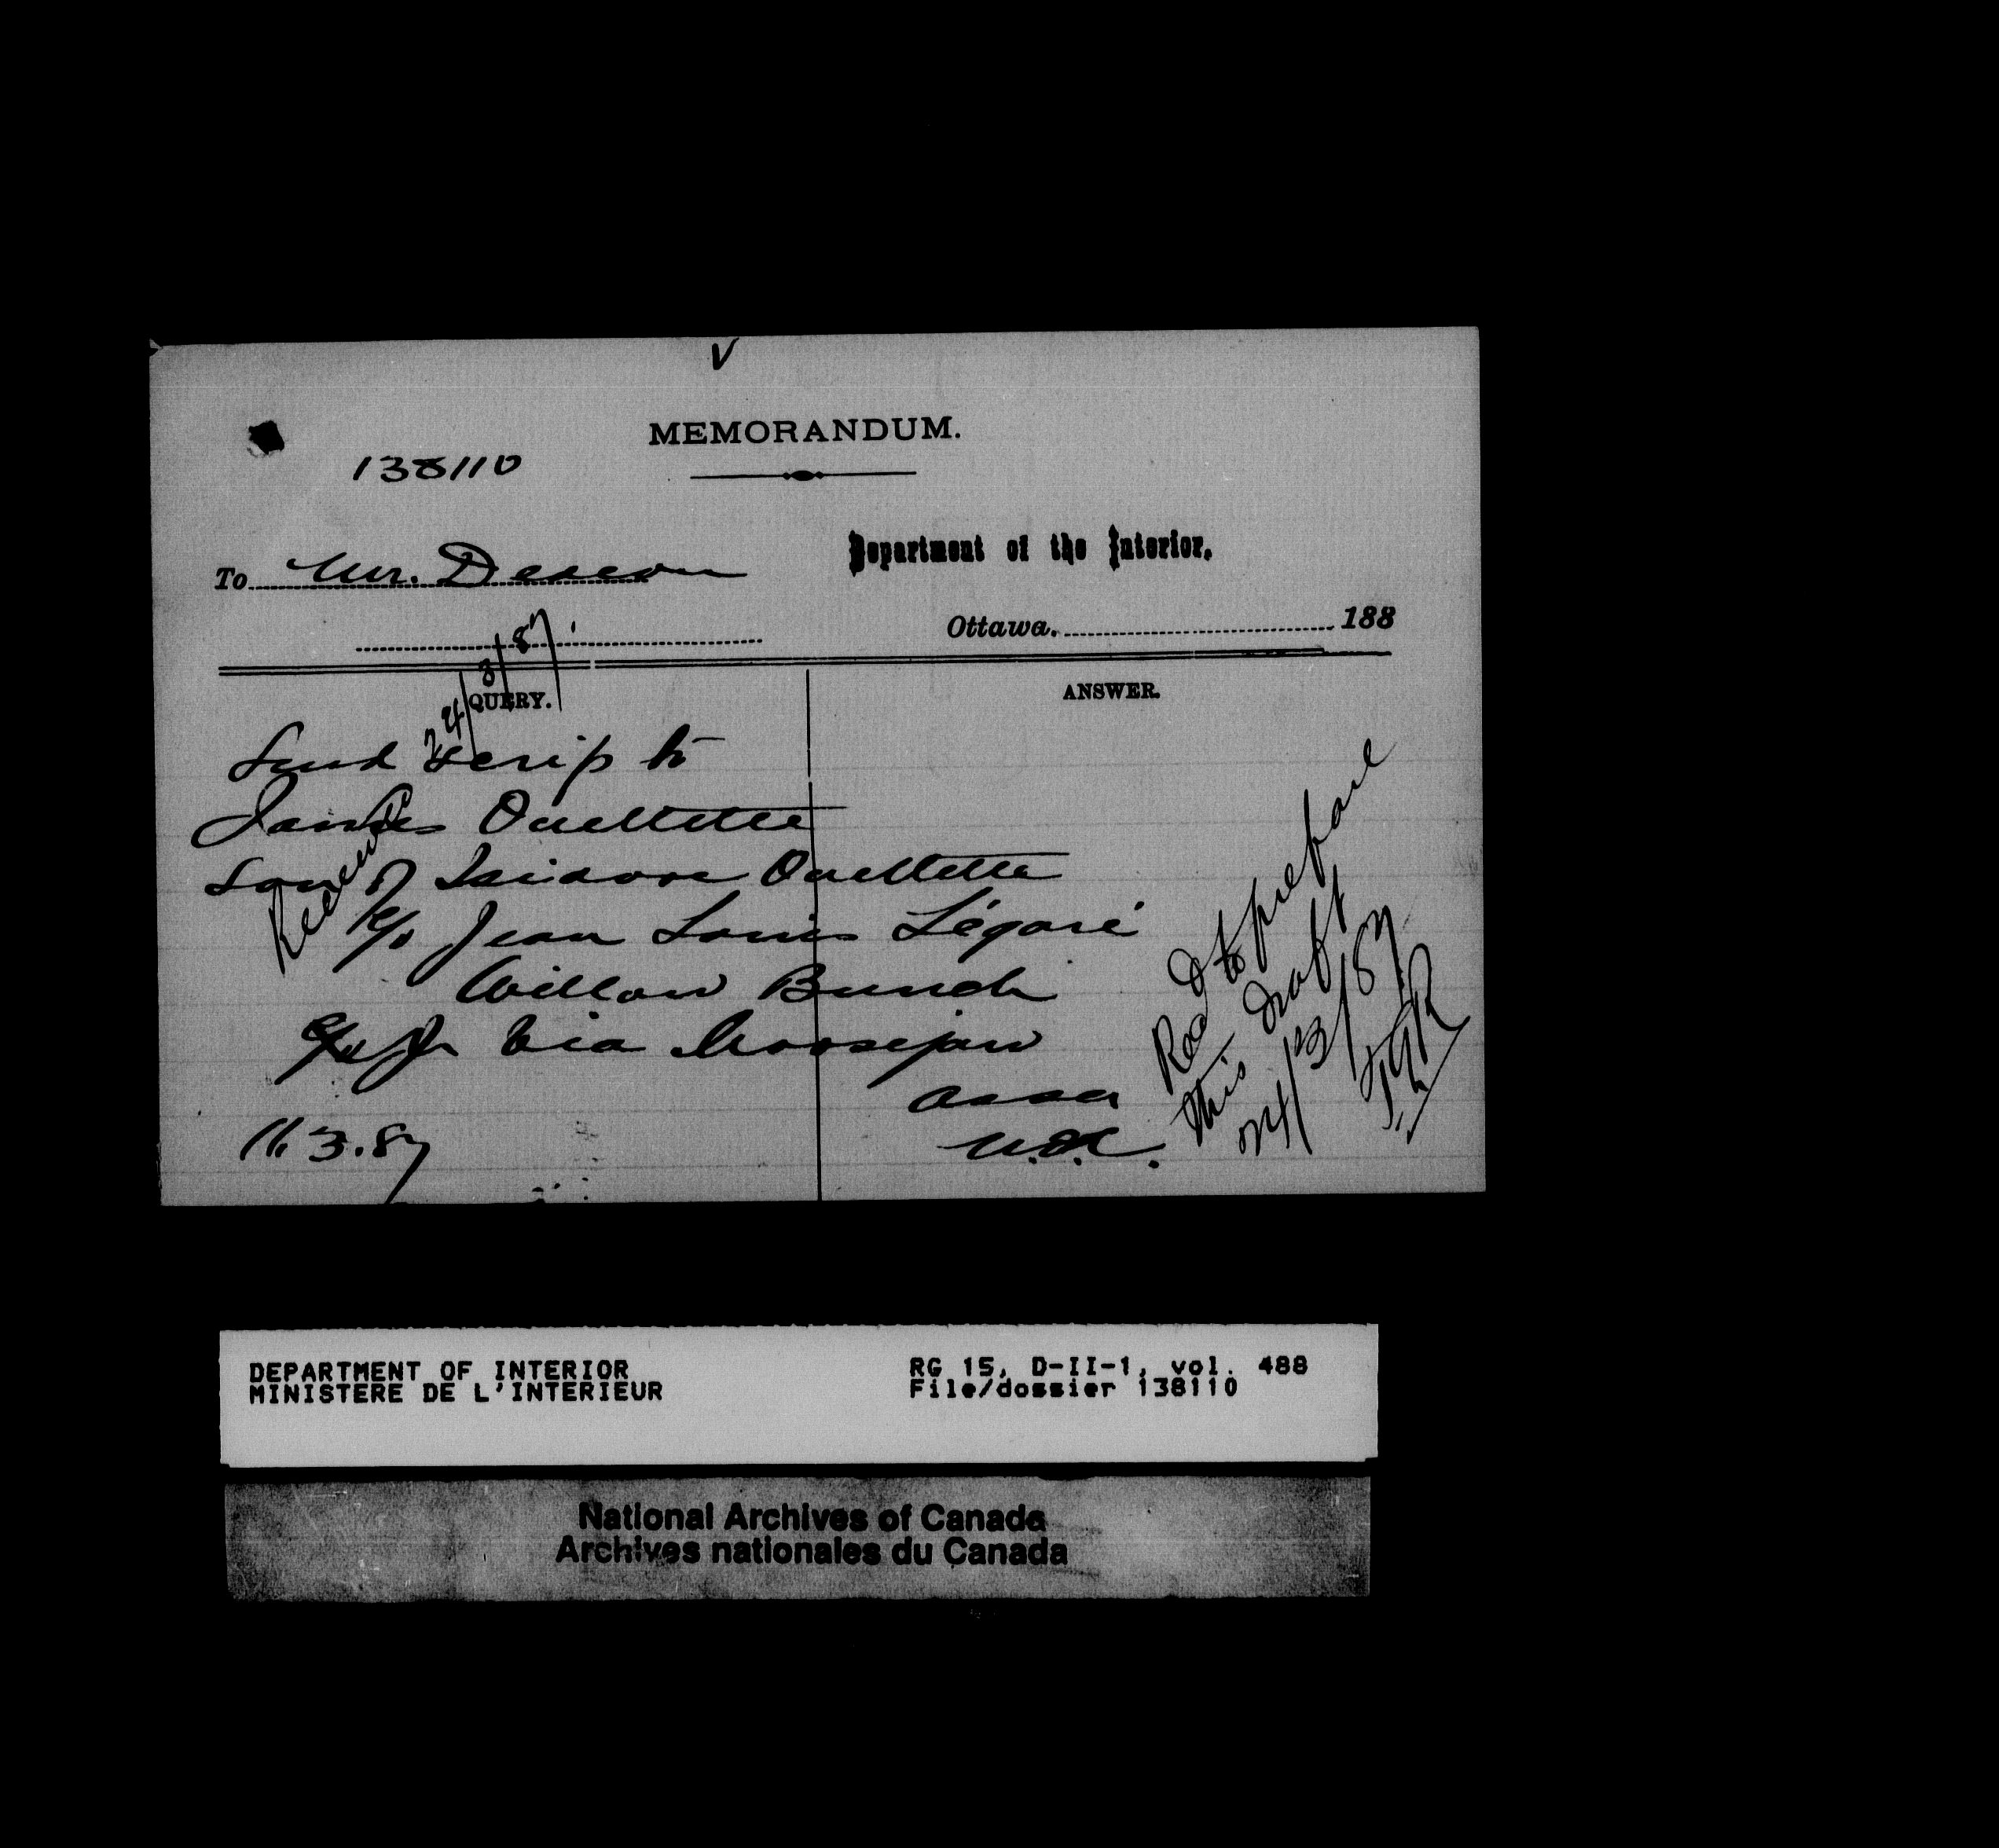 V
MEMORANDUM.
138110
Department of the Interior.
To Mr. Deacon
Ottawa. 188
QUERY.
ANSWER.
24/3/87
Send scrip to
James Ouellette
son of Isidore Ouellette
c/o Jean Louis Légaré
Willow Bunch
via Moosejaw
Assa
11.3.87
Received
Recd to prepare
this draft
24/3/87
DEPARTMENT OF INTERIOR
MINISTERE DE L'INTERIEUR
RG 15, D-II-1, vol. 488
File/dossier 138110
National Archives of Canada
Archives nationales du Canada